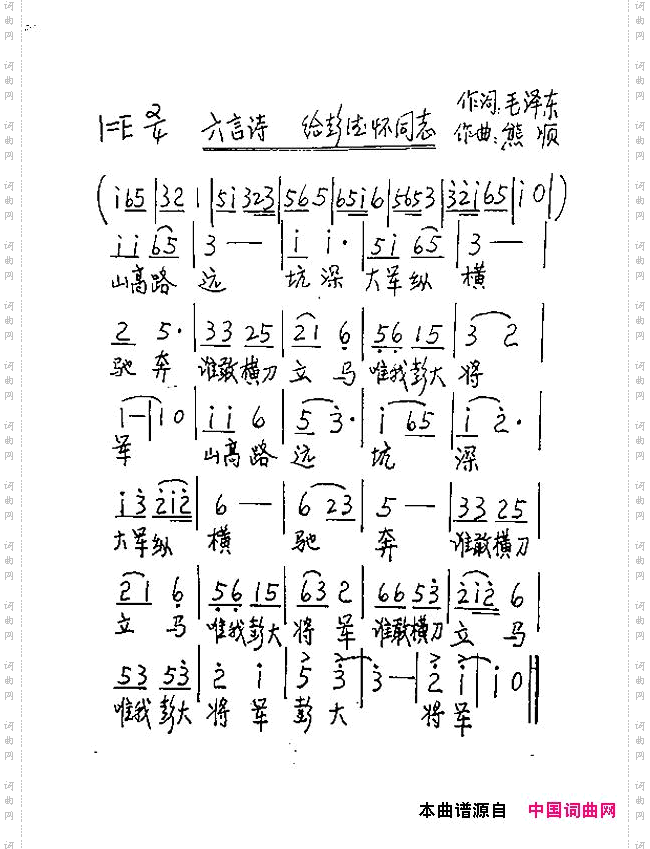 1=E 2/4 六言诗 给彭德怀同志 作词:毛泽东
作曲:熊顺
(i65|321|5i323|565|65i6|5653|32i65|i0|)
ii65|3—|ii·|5i65|3—|
山高路远 坑深 大军纵横
25·|3325|216|5615|32|
驰奔 谁敢横刀 立马 唯我彭大将
1—|10|ii6|53·|i65|i2·|
军 山高路远 坑 深
i32i2|6—|623|5—|3325|
大军纵横 驰 奔 谁敢横刀
216|5615|632|6653|2i26|
立马 唯我彭大 将军 谁敢横刀 立马
5353|2i|53|3—|2i|i0||
唯我彭大 将军 彭大 将军
本曲谱源自 中国词曲网
词曲网